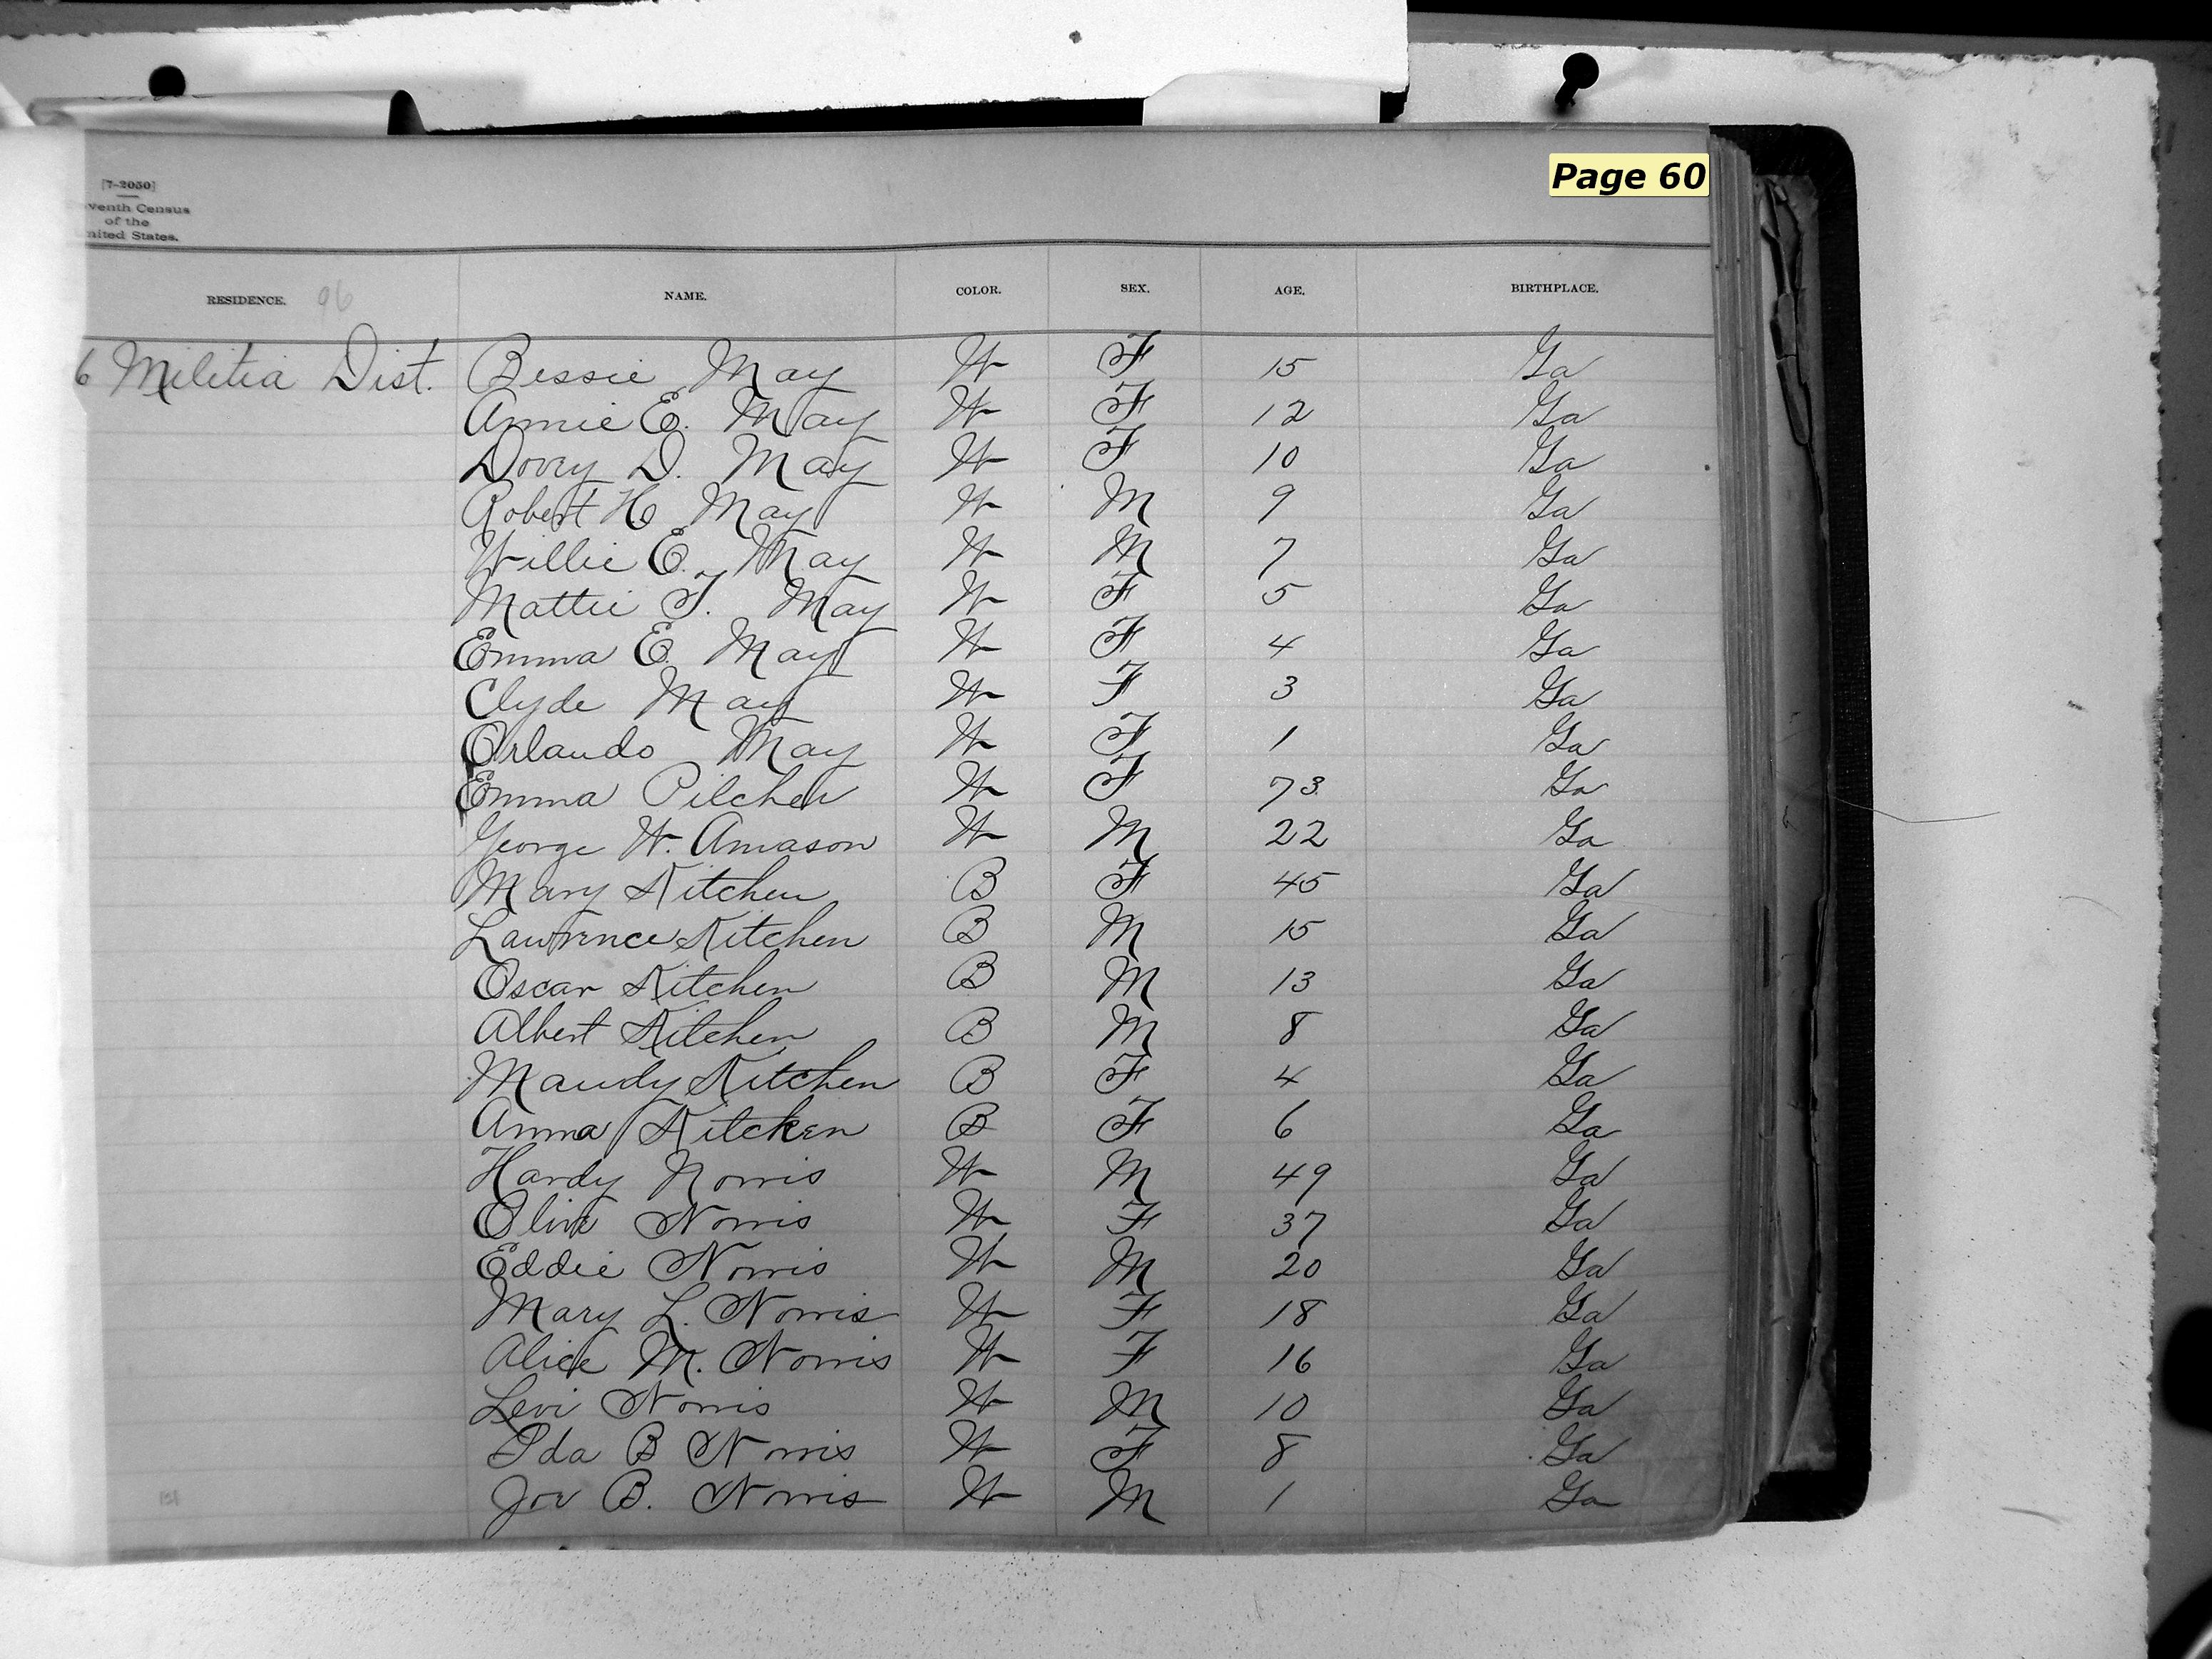 Page 60
[7-2050]
venth Census
of the
nited States.
RESIDENCE. 96 NAME. COLOR. SEX. AGE. BIRTHPLACE.
6 Militia Dist. Bessie May W F 15 Ga
Annie E. May W F 12 Ga
Dovey D. May W F 10 Ga
Robert H May W M 9 Ga
Willie E. May W M 7 Ga
Mattie T. May W F 5 Ga
Emma E. May W F 4 Ga
Clyde May W F 3 Ga
Orlando May W F 1 Ga
Emma Pilcher W F 73 Ga
George W. Amason W M 22 Ga
Mary Kitchen B F 45 Ga
Lawrence Kitchen B M 15 Ga
Oscar Kitchen B M 13 Ga
Albert Kitchen B M 8 Ga
Mandy Kitchen B F 4 Ga
Anna Kitchen B F 6 Ga
Hardy Norris W M 49 Ga
Olive Norris W F 37 Ga
Eddie Norris W M 20 Ga
Mary L. Norris W F 18 Ga
Alice M. Norris W F 16 Ga
Levi Norris W M 10 Ga
Ida B Norris W F 8 Ga
Joe B. Norris W M 1 Ga